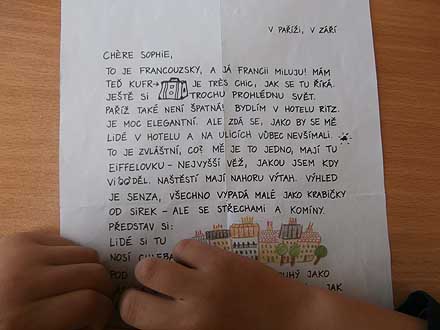 V PAŘÍŽI, V ZÁŘÍ
CHÈRE SOPHIE,
TO JE FRANCOUZSKY, A JÁ FRANCII MILUJU! MÁM
TEĎ KUFR→ JE TRÈS CHIC, JAK SE TU ŘÍKÁ.
JEŠTĚ SI TROCHU PROHLÉDNU SVĚT.
PAŘÍŽ TAKÉ NENÍ ŠPATNÁ! BYDLÍM V HOTELU RITZ.
JE MOC ELEGANTNÍ. ALE ZDÁ SE, JAKO BY SE MĚ
LIDÉ V HOTELU A NA ULICÍCH VŮBEC NEVŠÍMALI.
TO JE ZVLÁŠTNÍ, CO? MĚ JE TO JEDNO, MAJÍ TU
EIFFELOVKU - NEJVYŠŠÍ VĚŽ, JAKOU JSEM KDY
VIDĚL. NAŠTĚSTÍ MAJÍ NAHORU VÝTAH. VÝHLED
JE SENZA, VŠECHNO VYPADÁ MALÉ JAKO KRABIČKY
OD SIREK - ALE SE STŘECHAMI A KOMÍNY.
PŘEDSTAV SI:
LIDÉ SI TU
NOSÍ CHLEBA
POD JAKO
JAK